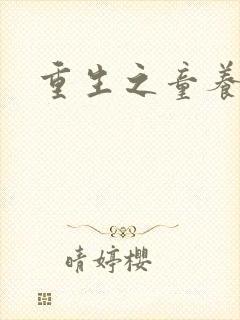 重生之童养
晴婷樱